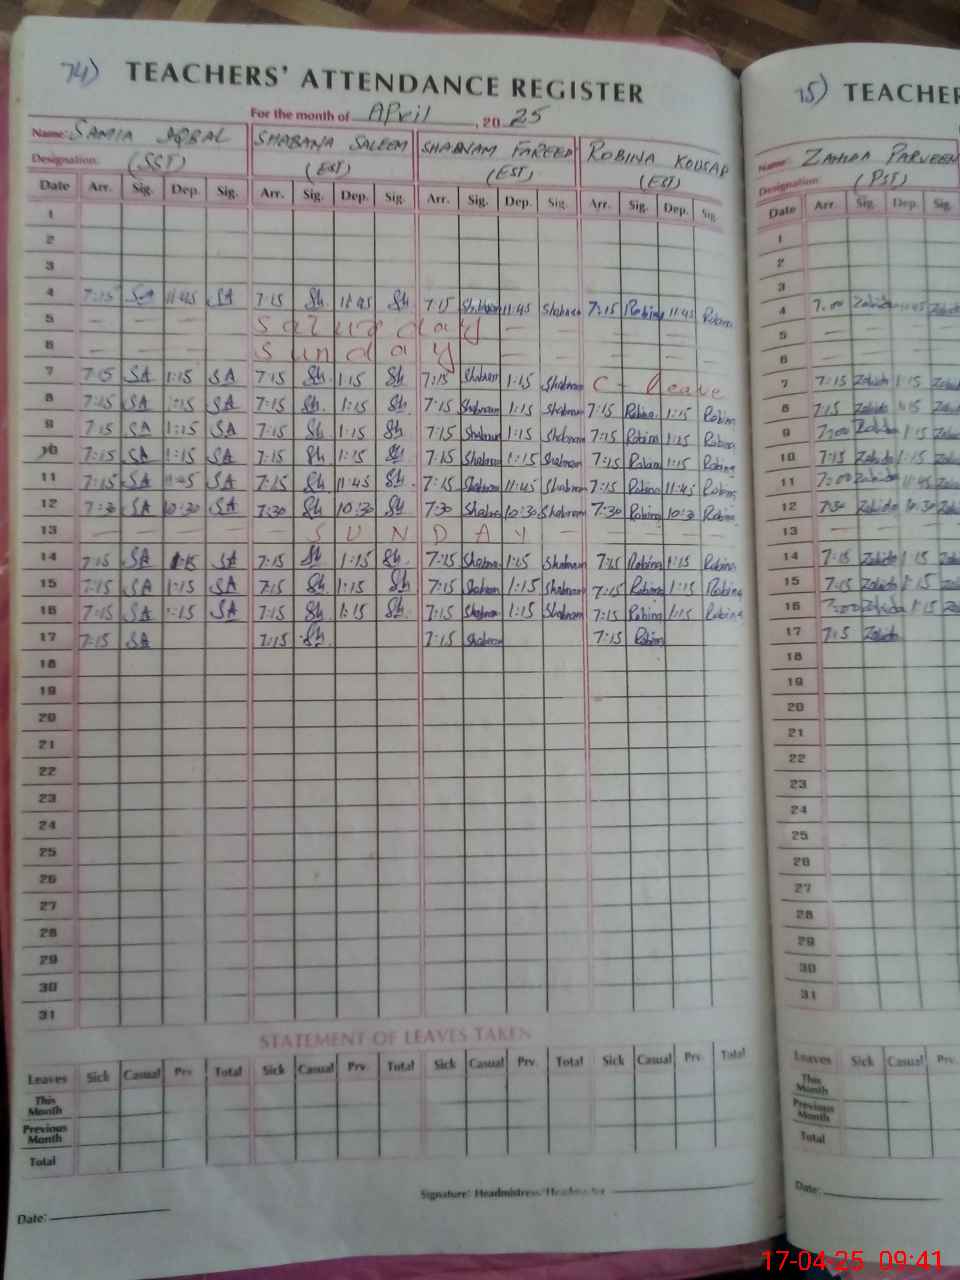 74) TEACHERS' ATTENDANCE REGISTER
For the month of April, 2025
Name: SAMIA IQBAL SHABANA SALEEM SHABNAM FAREED ROBINA KOUSAR
Designation: (SST) (EST) (EST) (EST)
Date Arr. Sig. Dep. Sig. Arr. Sig. Dep. Sig. Arr. Sig. Dep. Sig. Arr. Sig. Dep. Sig.
1
2
3
4 7:15 SA 11:45 SA 7:15 Sh 11:45 Sh 7:15 Shabnam 11:45 Shabnam 7:15 Robina 11:45 Robina
5 — — Saturday — —
6 — — Sunday — — — —
7 7:15 SA 1:15 SA 7:15 Sh 1:15 Sh 7:15 Shabnam 1:15 Shabnam C - leave
8 7:15 SA 1:15 SA 7:15 Sh. 1:15 Sh 7:15 Shabnam 1:15 Shabnam 7:15 Robina 1:15 Robina
9 7:15 SA 1:15 SA 7:15 Sh 1:15 Sh 7:15 Shabnam 1:15 Shabnam 7:15 Robina 1:15 Robina
10 7:15 SA 1:15 SA 7:15 Sh 1:15 Sh 7:15 Shabnam 1:15 Shabnam 7:15 Robina 1:15 Robina
11 7:15 SA 11:45 SA 7:15 Sh 11:45 Sh. 7:15 Shabnam 11:45 Shabnam 7:15 Robina 11:45 Robina
12 7:30 SA 10:30 SA 7:30 Sh 10:30 Sh 7:30 Shabnam 10:30 Shabnam 7:30 Robina 10:30 Robina
13 — — — — — SUNDAY — — — — —
14 7:15 SA 1:15 SA 7:15 Sh 1:15 Sh. 7:15 Shabnam 1:15 Shabnam 7:15 Robina 1:15 Robina
15 7:15 SA 1:15 SA 7:15 Sh 1:15 Sh 7:15 Shabnam 1:15 Shabnam 7:15 Robina 1:15 Robina
16 7:15 SA 1:15 SA 7:15 Sh 1:15 Sh. 7:15 Shabnam 1:15 Shabnam 7:15 Robina 1:15 Robina
17 7:15 SA 7:15 Sh. 7:15 Shabnam 7:15 Robina
18
19
20
21
22
23
24
25
26
27
28
29
30
31
STATEMENT OF LEAVES TAKEN
Leaves Sick Casual Prv. Total Sick Casual Prv. Total Sick Casual Prv. Total Sick Casual Prv. Total
This Month
Previous Month
Total
Signature: Headmistress/Headmaster
Date:
75) TEACHER
Name: ZAHIDA PARVEEN
Designation: (PST)
Date Arr. Sig. Dep. Sig.
1
2
3
4 7:00 Zahida 11:45 Zahida
5 — — —
6 — — —
7 7:15 Zahida 1:15 Zahida
8 7:15 Zahida 1:15 Zahida
9 7:00 Zahida 1:15 Zahida
10 7:15 Zahida 1:15 Zahida
11 7:00 Zahida 11:45 Zahida
12 7:30 Zahida 10:30 Zahida
13 — — — —
14 7:15 Zahida 1:15 Zahida
15 7:15 Zahida 1:15 Zahida
16 7:00 Zahida 1:15 Zahida
17 7:15 Zahida
18
19
20
21
22
23
24
25
26
27
28
29
30
31
Leaves Sick Casual Prv.
This Month
Previous Month
Total
Date:
17-04-25 09:41